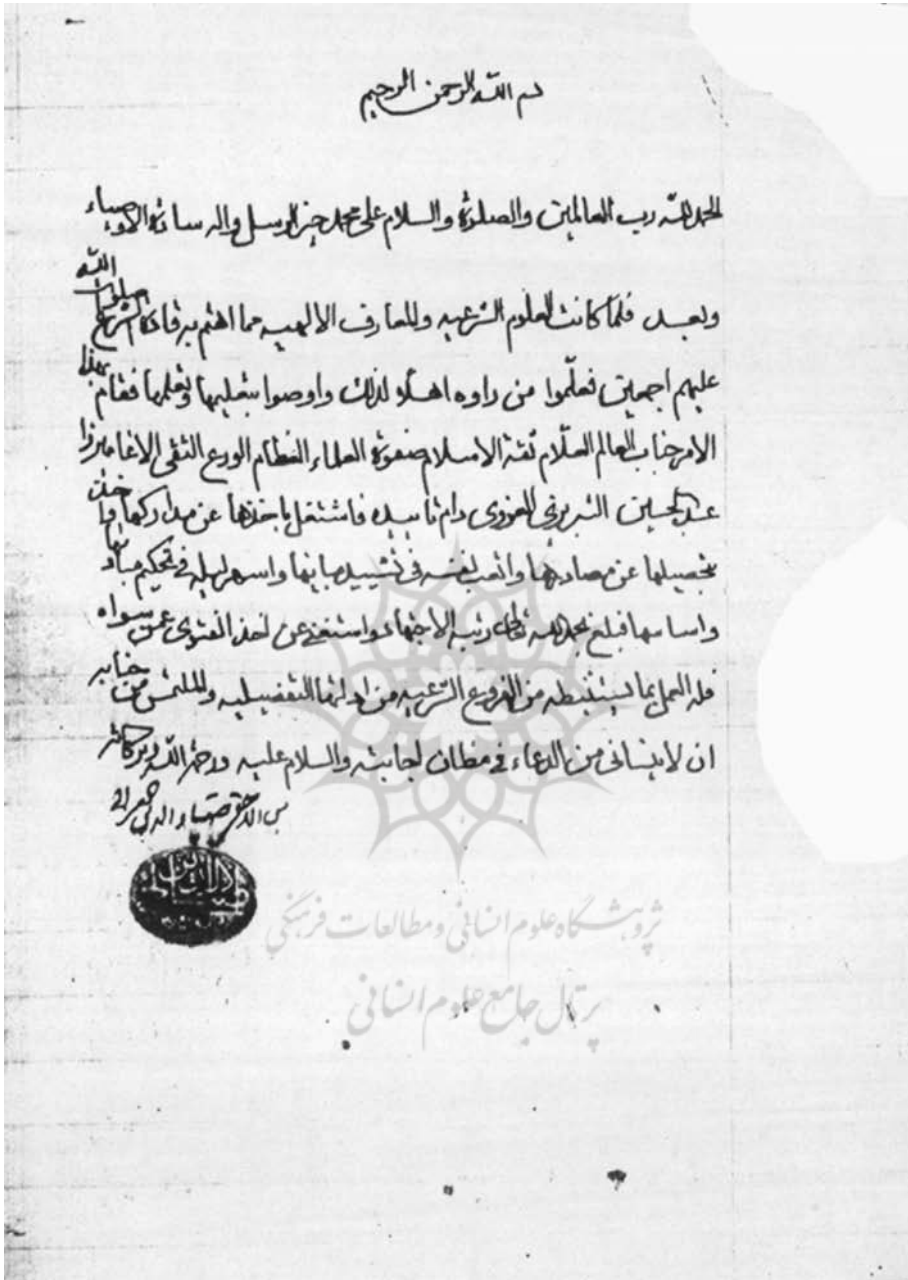 بسم الله الرحمن الرحيم
الحمد لله رب العالمين والصلوة والسلام على محمد خير الرسل واله سادة الاوصياء
وبعد فلما كانت العلوم الشرعيه والمعارف الالهيه مما اهتم به قادة الشرع سلام الله
عليهم اجمعين فعلّموا من راوه اهلاً لذلك واوصوا بتعليمها وتعلمها فقام بهذا
الامر جناب العالم العلّام ثقة الاسلام صفوة العلماء العظام الورع التقى الاغا ميرزا
عبد الحسين التبريزي الغروي دام تاييده فاشتغل باخذها عن مداركها واخذ
بتحصيلها عن مصادرها واتعب نفسه في تشييد مبانيها واسهر ليله في تحكيم مباديها
واساسها فبلغ بحمد الله تعالى رتبة الاجتهاد واستغنى عن اخذ الفتوى عمن سواه
فله العمل بما يستنبطه من الفروع الشرعيه من ادلتها التفصيليه والملتمس من جنابه
ان لا ينساني من الدعاء في مظان اجابته والسلام عليه ورحمة الله وبركاته
من الاحقر ضياء الدين العراقي
پژوهشگاه علوم انسانی و مطالعات فرهنگی
پرتال جامع علوم انسانی